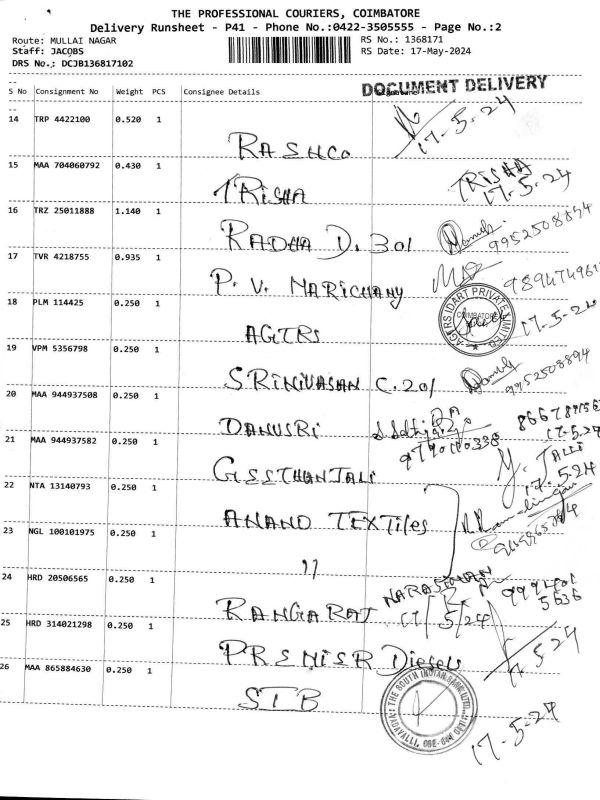 THE PROFESSIONAL COURIERS, COIMBATORE
Delivery Runsheet - P41 - Phone No.:0422-3505555 - Page No.:2
Route: MULLAI NAGAR
Staff: JACOBS
DRS No.; DCJB136817102
RS No.: 1368171
RS Date: 17-May-2024
DOCUMENT DELIVERY
S No Consignment No Weight PCS Consignee Details
14 TRP 4422100 0.520 1
RASHCO
17-5-24
15 MAA 704060792 0.430 1
TRISHA
TRISHA
17-5-24
16 TRZ 25011888 1.140 1
RADHA D. 301
9952508894
17 TVR 4218755 0.935 1
P. V. MARICHAMY
18 PLM 114425 0.250 1
AGIRS
AGIRS IDART PRIVATE LIMITED
COIMBATORE
17-5-24
19 VPM 5356798 0.250 1
SRINIVASAN C.201
9952508894
20 MAA 944937508 0.250 1
DANUSRI
17-5-24
21 MAA 944937582 0.250 1
GEETHANJALI
17-5-24
22 NTA 13140793 0.250 1
ANAND TEXTILES
23 NGL 100101975 0.250 1
11
24 HRD 20506565 0.250 1
RANGARAJ
NARASIMHAN
17/5/24
25 HRD 314021298 0.250 1
PRSMISR Diesels
17-5-24
26 MAA 865884630 0.250 1
SIB
THE SOUTH INDIAN BANK LTD.
VADAVALLI, CBE-641 041
17-5-24